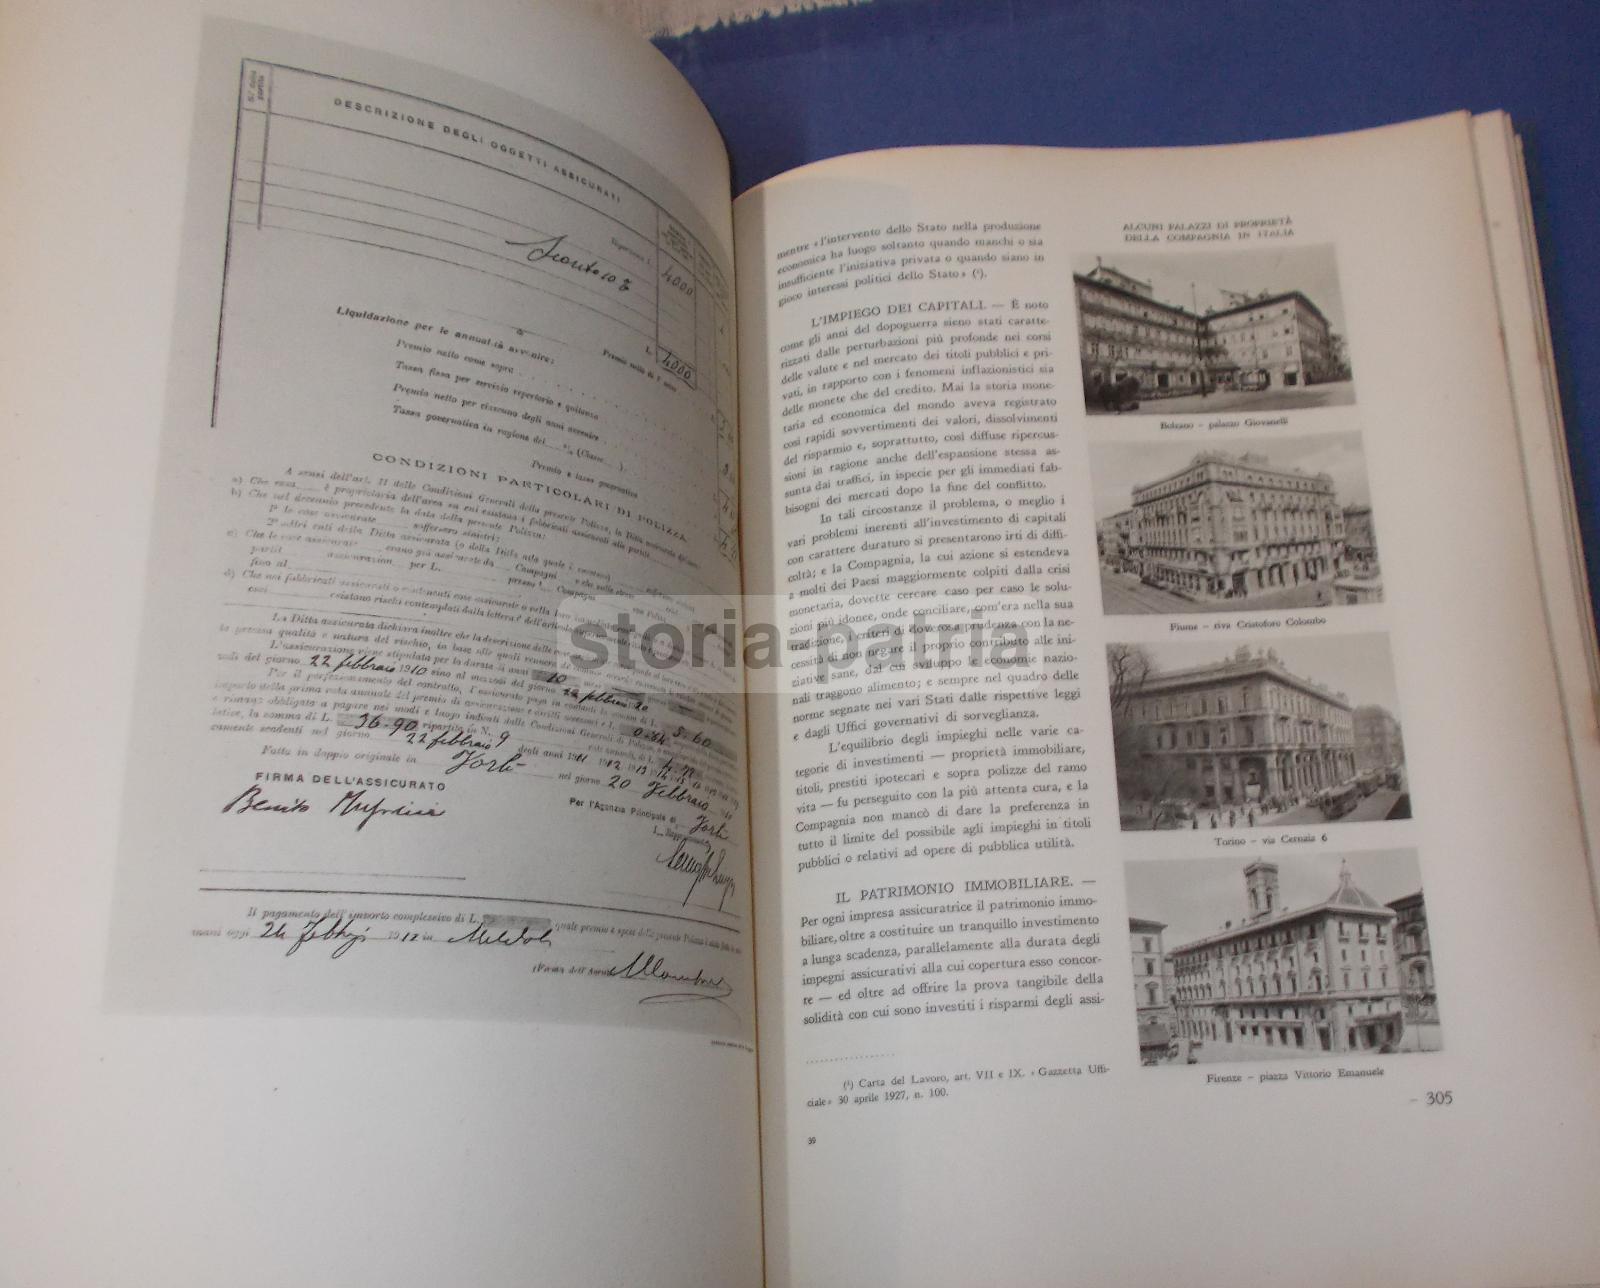 N.° della partita
DESCRIZIONE DEGLI OGGETTI ASSICURATI
Sconto 10 %
4000
L. 4000
Liquidazione per le annualità avvenire:
Premio netto come sopra
Tassa fissa per servizio repertorio e quitanza
Premio netto per ciascuno degli anni avvenire
Tassa governativa in ragione del % (Classe ).
Premio e tassa governativa
CONDIZIONI PARTICOLARI DI POLIZZA
A sensi dell'art. II delle Condizioni Generali della presente Polizza, la Ditta assicurata
a) Che essa è proprietaria dell'area su cui esistono i fabbricati assicurati alle partite
b) Che nel decennio precedente la data della presente Polizza:
1° le cose assicurate sofferto sinistri;
2° altri enti della Ditta assicurata (o della Ditta alla quale è successa)
c) Che le cose assicurate erano già assicurate da
partit assicurazion per L. presso Compagni
fino al
d) Che nei fabbricati assicurati o contenenti cose assicurate o nella loro
esistano rischi contemplati dalla lettera
La Ditta assicurata dichiara inoltre che la descrizione delle cose
la precisa qualità e natura del rischio, in base alle quali venne
L'assicurazione viene stipulata per la durata di anni 10
zodì del giorno 22 febbraio 1910 sino al mezzodì del giorno 22 febbraio 20
Per il perfezionamento del contratto, l'assicurato paga in contanti la somma di L.
importo della prima rata annuale del premio di assicurazione e diritti accessori 5.60
e rimane obbligato a pagare nei modi e luogo indicati dalle Condizioni Generali di Polizza 0.84
lative, la somma di L. 36.90 ripartita in N. 9 rate annuali, di L.
camente scadenti nel giorno 22 febbraio degli anni 1911 1912
Fatta in doppio originale in Forlì nel giorno 20 Febbraio
FIRMA DELL'ASSICURATO
Per l'Agenzia Principale di Forlì
Benito Mussolini
Il pagamento dell'importo complessivo di L. quale premio e spesa della presente Polizza
mani oggi 24 1912 in Meldola
(Firma dell'Agente
mentre « l'intervento dello Stato nella produzione
economica ha luogo soltanto quando manchi o sia
insufficiente l'iniziativa privata o quando siano in
gioco interessi politici dello Stato » (¹).
L'IMPIEGO DEI CAPITALI. — È noto
come gli anni del dopoguerra sieno stati caratte-
rizzati dalle perturbazioni più profonde nei corsi
delle valute e nel mercato dei titoli pubblici e pri-
vati, in rapporto con i fenomeni inflazionistici sia
delle monete che del credito. Mai la storia mone-
taria ed economica del mondo aveva registrato
così rapidi sovvertimenti dei valori, dissolvimenti
del risparmio e, soprattutto, così diffuse ripercus-
sioni in ragione anche dell'espansione stessa as-
sunta dai traffici, in ispecie per gli immediati fab-
bisogni dei mercati dopo la fine del conflitto.
In tali circostanze il problema, o meglio i
vari problemi inerenti all'investimento di capitali
con carattere duraturo si presentarono irti di diffi-
coltà; e la Compagnia, la cui azione si estendeva
a molti dei Paesi maggiormente colpiti dalla crisi
monetaria, dovette cercare caso per caso le solu-
zioni più idonee, onde conciliare, com'era nella sua
tradizione, i criteri di doverosa prudenza con la ne-
cessità di non negare il proprio contributo alle ini-
ziative sane, dal cui sviluppo le economie nazio-
nali traggono alimento; e sempre nel quadro delle
norme segnate nei vari Stati dalle rispettive leggi
e dagli Uffici governativi di sorveglianza.
L'equilibrio degli impieghi nelle varie ca-
tegorie di investimenti — proprietà immobiliare,
titoli, prestiti ipotecari e sopra polizze del ramo
vita — fu perseguito con la più attenta cura, e la
Compagnia non mancò di dare la preferenza in
tutto il limite del possibile agli impieghi in titoli
pubblici o relativi ad opere di pubblica utilità.
IL PATRIMONIO IMMOBILIARE. —
Per ogni impresa assicuratrice il patrimonio immo-
biliare, oltre a costituire un tranquillo investimento
a lunga scadenza, parallelamente alla durata degli
impegni assicurativi alla cui copertura esso concor-
re — ed oltre ad offrire la prova tangibile della
solidità con cui sono investiti i risparmi degli assi-
(¹) Carta del Lavoro, art. VII e IX. « Gazzetta Uffi-
ciale » 30 aprile 1927, n. 100.
39
ALCUNI PALAZZI DI PROPRIETÀ
DELLA COMPAGNIA IN ITALIA
Bolzano – palazzo Giovanelli
Fiume – riva Cristoforo Colombo
Torino – via Cernaia 6
Firenze – piazza Vittorio Emanuele
– 305
storia-patria